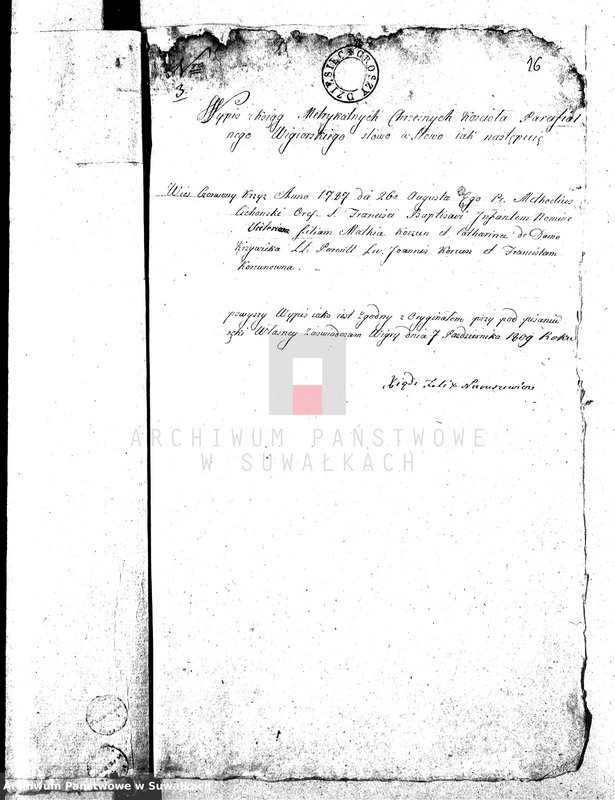 Nro
3.
16
DZIESIĘC GROSZY
Wypis z ksiąg Metrykalnych Chrzesnych Kościoła Parafial
nego Wigierskiego słowo w słowo iak następuie
Wieś Czerwony Krzyż Anno 1787 die 26 Augusta Ego Fr. Methodius
Cichonski Ord. S. Francisci Baptisavi Infantem Nomine
Victoriam filiam Mathia Korzun et Catharina de Domo
LL. Parentt Lev. Joannes Korzun et Franciscam
Korzunowna.
powyszy Wypis iako iest Zgodny z Oryginałem przy pod pisaniu
ręki Własney Zaswiadczam Wigry dnia 7 Października 1809 Roku
Xiądz Felix Naruszewicz
ARCHIWUM PAŃSTWOWE
W SUWAŁKACH
Archiwum Państwowe w Suwałkach